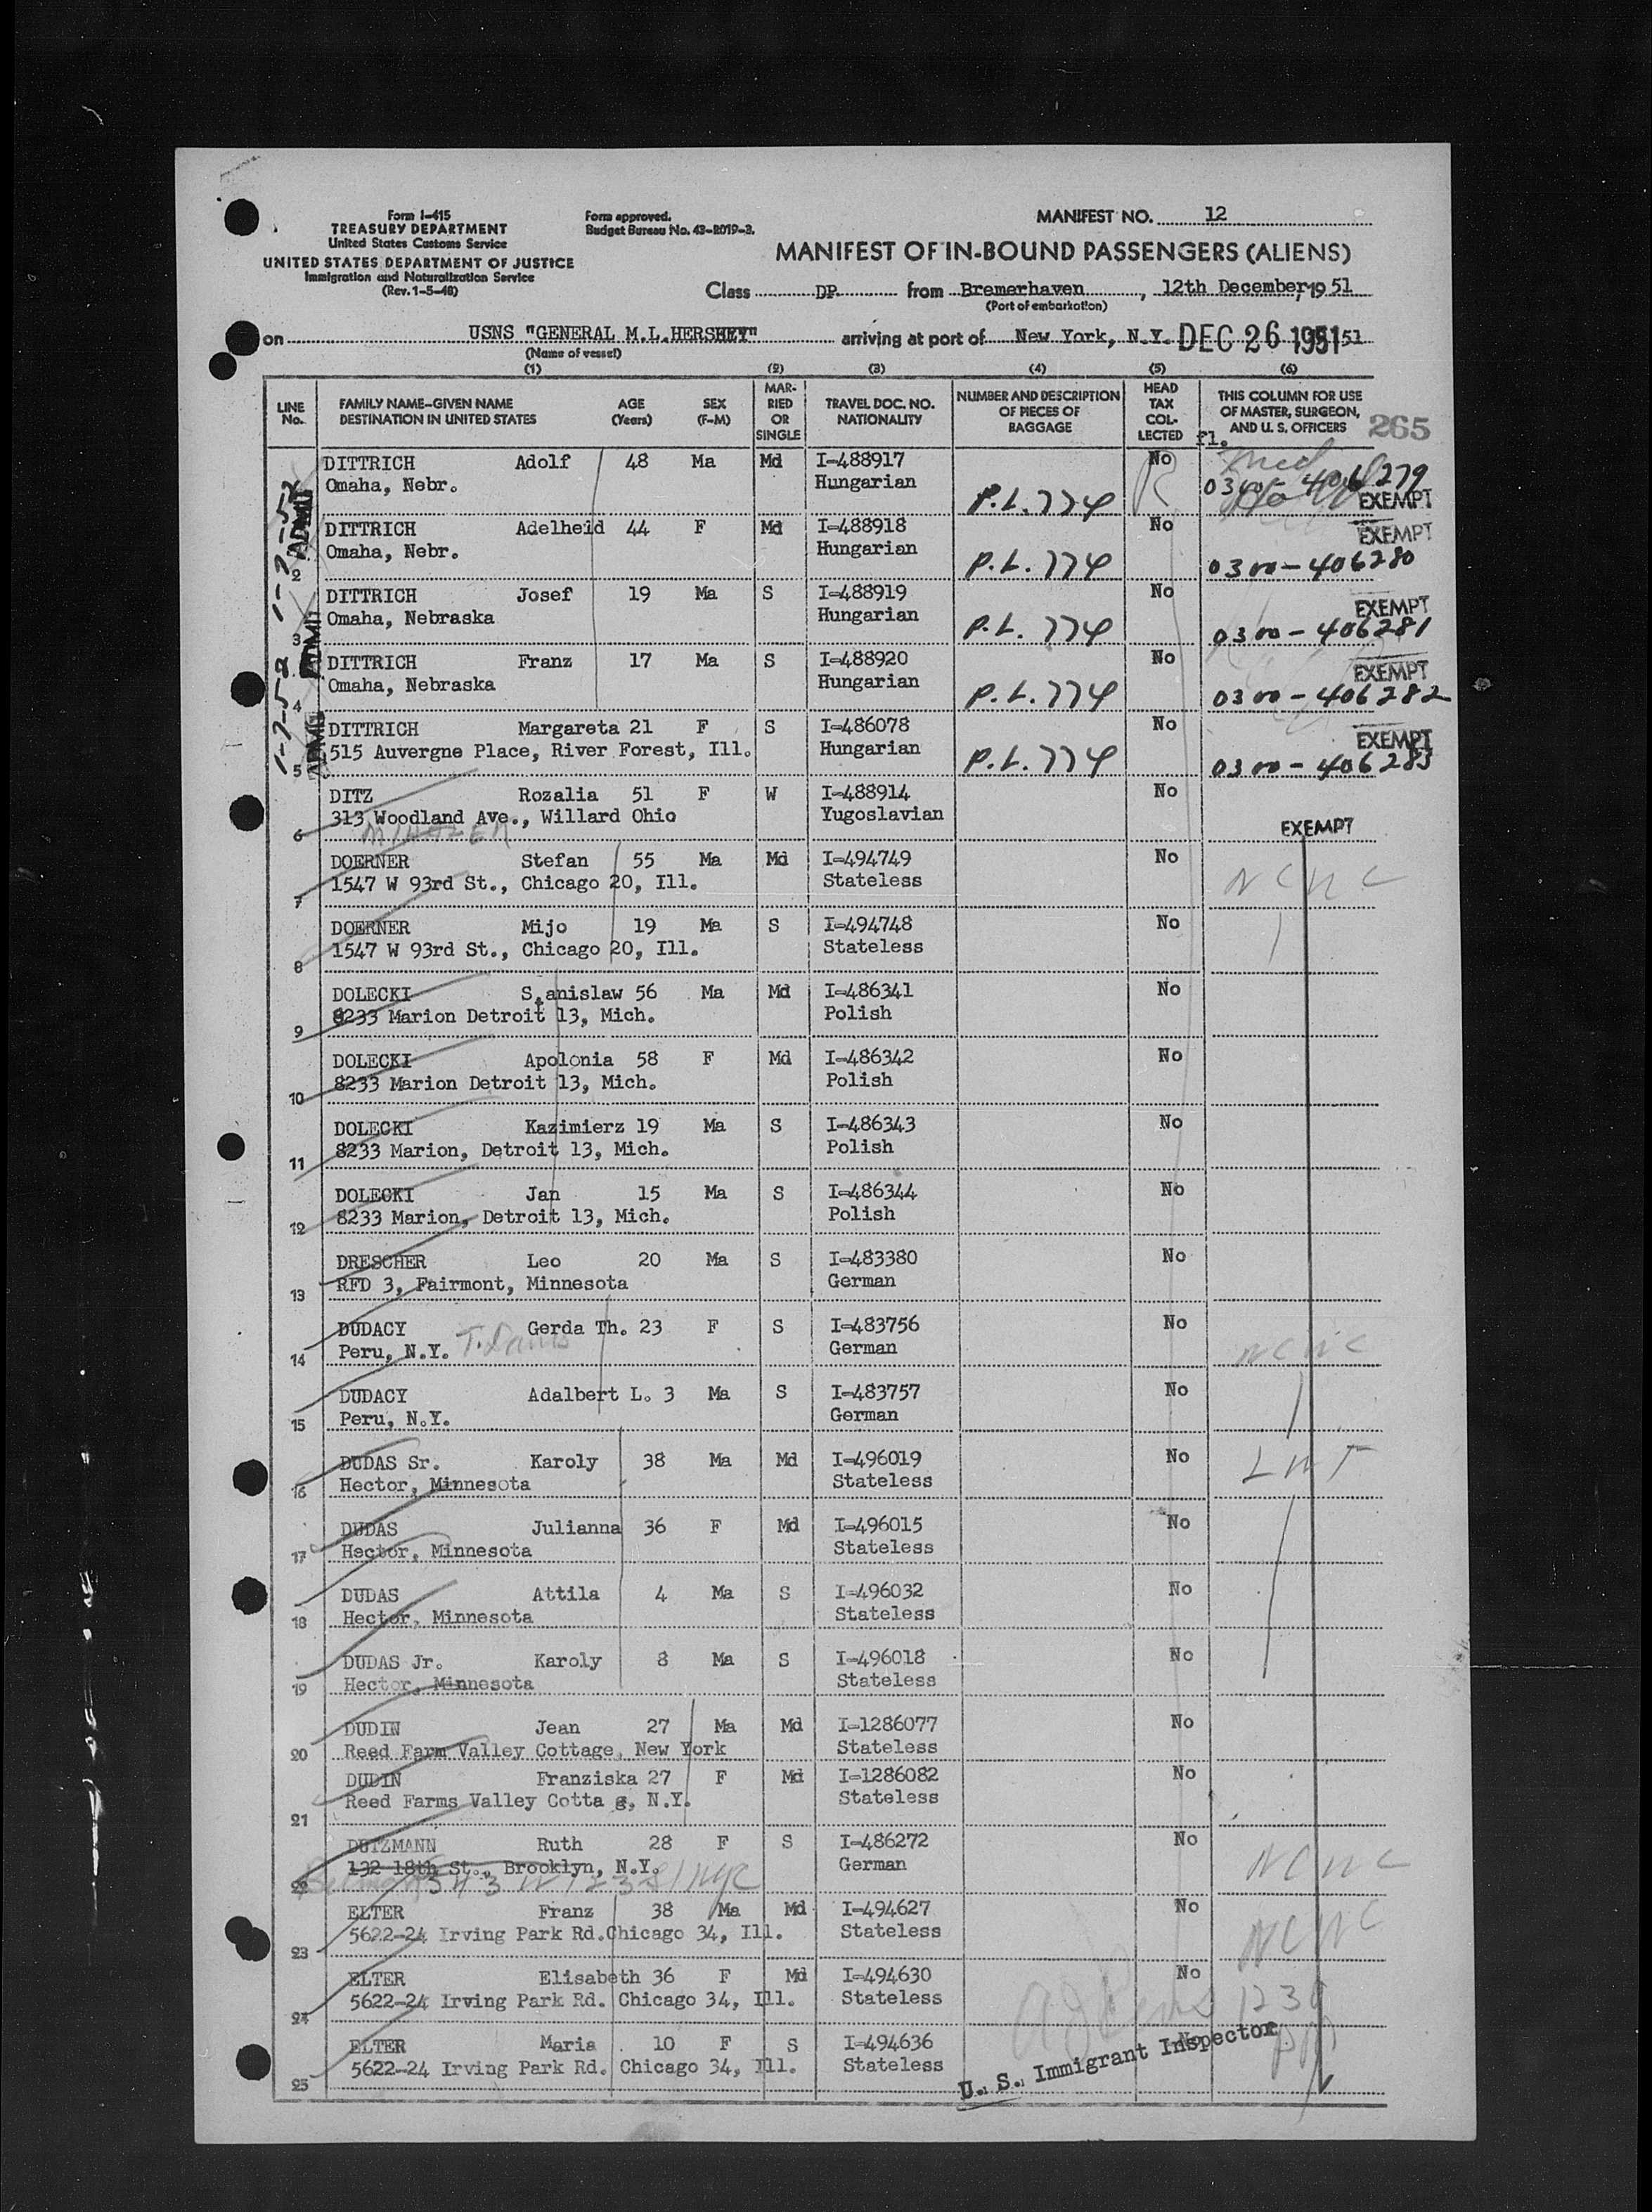 Form I-415
TREASURY DEPARTMENT
United States Customs Service
UNITED STATES DEPARTMENT OF JUSTICE
Immigration and Naturalization Service
(Rev. 1-5-48)
Form approved.
Budget Bureau No. 43-R019-3.
MANIFEST NO. 12
MANIFEST OF IN-BOUND PASSENGERS (ALIENS)
Class DP from Bremerhaven, 12th December, 19 51
(Port of embarkation)
on USNS "GENERAL M.L.HERSHEY" arriving at port of New York, N.Y. DEC 26 1951 51
(Name of vessel)
(1) (2) (3) (4) (5) (6)
LINE No. FAMILY NAME-GIVEN NAME DESTINATION IN UNITED STATES AGE (Years) SEX (F-M) MARRIED OR SINGLE TRAVEL DOC. NO. NATIONALITY NUMBER AND DESCRIPTION OF PIECES OF BAGGAGE HEAD TAX COLLECTED THIS COLUMN FOR USE OF MASTER, SURGEON, AND U. S. OFFICERS 265
fl.
DITTRICH Adolf 48 Ma Md I-488917 No
Omaha, Nebr. Hungarian P.L. 774 0300-406279 EXEMPT
1-7-52 ADMIT
DITTRICH Adelheid 44 F Md I-488918 No EXEMPT
2 Omaha, Nebr. Hungarian P.L. 774 0300-406280
DITTRICH Josef 19 Ma S I-488919 No EXEMPT
3 Omaha, Nebraska Hungarian P.L. 774 0300-406281
ADMIT
DITTRICH Franz 17 Ma S I-488920 No EXEMPT
4 Omaha, Nebraska Hungarian P.L. 774 0300-406282
1-7-52 ADMIT
DITTRICH Margareta 21 F S I-486078 No EXEMPT
5 515 Auvergne Place, River Forest, Ill. Hungarian P.L. 774 0300-406283
DITZ Rozalia 51 F W I-488914 No
6 313 Woodland Ave., Willard Ohio Yugoslavian EXEMPT
DOERNER Stefan 55 Ma Md I-494749 No
7 1547 W 93rd St., Chicago 20, Ill. Stateless NCWC
DOERNER Mijo 19 Ma S I-494748 No
8 1547 W 93rd St., Chicago 20, Ill. Stateless
DOLECKI Stanislaw 56 Ma Md I-486341 No
9 8233 Marion Detroit 13, Mich. Polish
DOLECKI Apolonia 58 F Md I-486342 No
10 8233 Marion Detroit 13, Mich. Polish
DOLECKI Kazimierz 19 Ma S I-486343 No
11 8233 Marion, Detroit 13, Mich. Polish
DOLECKI Jan 15 Ma S I-486344 No
12 8233 Marion, Detroit 13, Mich. Polish
DRESCHER Leo 20 Ma S I-483380 No
13 RFD 3, Fairmont, Minnesota German
DUDACY Gerda Th. 23 F S I-483756 No
14 Peru, N.Y. German NCWC
DUDACY Adalbert L. 3 Ma S I-483757 No
15 Peru, N.Y. German
DUDAS Sr. Karoly 38 Ma Md I-496019 No
16 Hector, Minnesota Stateless LWF
DUDAS Julianna 36 F Md I-496015 No
17 Hector, Minnesota Stateless
DUDAS Attila 4 Ma S I-496032 No
18 Hector, Minnesota Stateless
DUDAS Jr. Karoly 8 Ma S I-496018 No
19 Hector, Minnesota Stateless
DUDIN Jean 27 Ma Md I-1286077 No
20 Reed Farm Valley Cottage, New York Stateless
DUDIN Franziska 27 F Md I-1286082 No
21 Reed Farms Valley Cotta g, N.Y. Stateless
DUTZMANN Ruth 28 F S I-486272 No
132 18th St., Brooklyn, N.Y. German NCWC
22 343 W 123 St NYC
ELTER Franz 38 Ma Md I-494627 No
23 5622-24 Irving Park Rd.Chicago 34, Ill. Stateless NCWC
ELTER Elisabeth 36 F Md I-494630 No
24 5622-24 Irving Park Rd. Chicago 34, Ill. Stateless 1230
ELTER Maria 10 F S I-494636 No
25 5622-24 Irving Park Rd. Chicago 34, Ill. Stateless pm
U. S. Immigrant Inspector